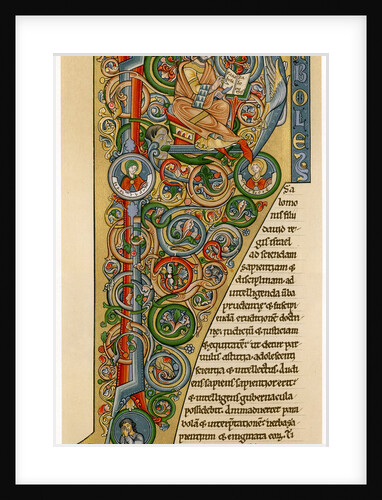 BOLES
Sa
lomo
nis filii
david re
gis israel
ad sciendam
sapientiam &
disciplinam · ad
intelligenda ūba
prudentię & suscipi
endā eruditionem doctri
nę · iudiciū & iusticiam
& equitatem · ut detur par
uulis astutia · adolescenti
scientia & intellectus. Audi
ens sapiens sapientior erit ·
& intelligens gubernacula
possidebit. Animaduertet para
bolam & interpretationem · uerba sa
pientium & enigmata eoꝝ. Ti